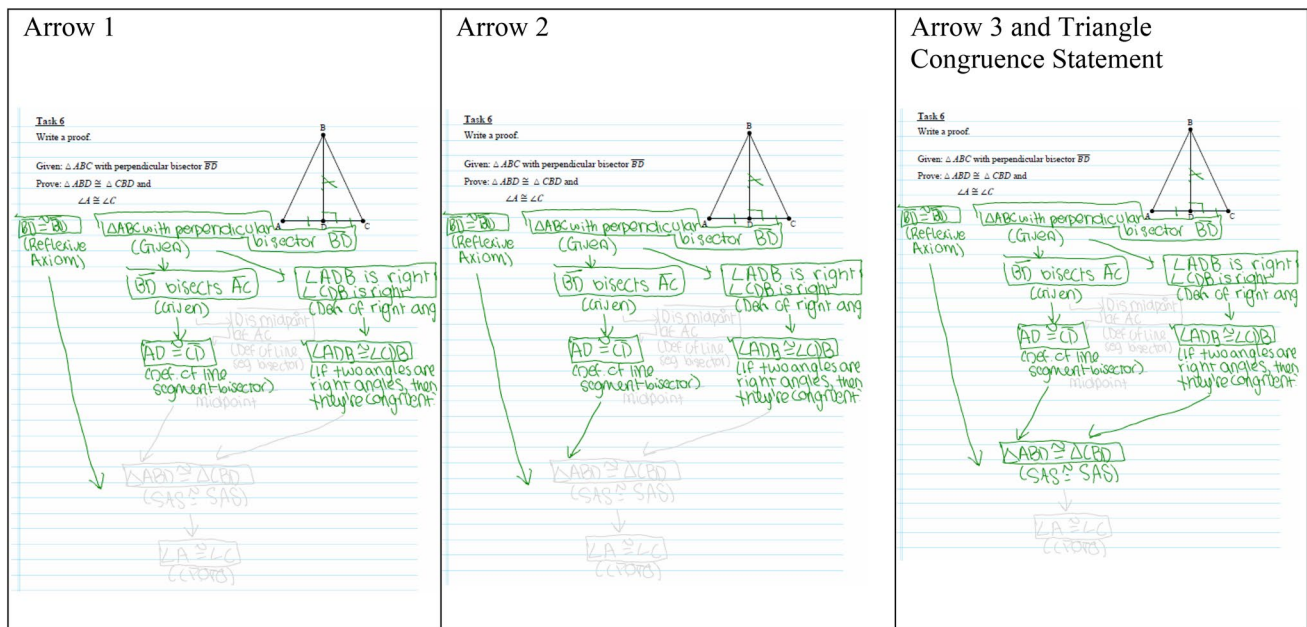 Arrow 1
Task 6
Write a proof.
Given: △ABC with perpendicular bisector BD
Prove: △ABD ≅ △CBD and
∠A ≅ ∠C
B
A
D
C
BD ≅ BD
(Reflexive
Axiom)
△ABC with perpendicular
bisector BD
(Given)
BD bisects AC
(Given)
∠ADB is right
∠CDB is right
(Defn of right ang
D is midpoint
of AC
(Def of line
seg bisector)
AD ≅ CD
(Def. of line
segment bisector)
midpoint
∠ADB ≅ ∠CDB
(If two angles are
right angles, then
they're congruent
△ABD ≅ △CBD
(SAS ≅ SAS)
∠A ≅ ∠C
(CPCTC)
Arrow 2
Task 6
Write a proof.
Given: △ABC with perpendicular bisector BD
Prove: △ABD ≅ △CBD and
∠A ≅ ∠C
B
A
D
C
BD ≅ BD
(Reflexive
Axiom)
△ABC with perpendicular
bisector BD
(Given)
BD bisects AC
(Given)
∠ADB is right
∠CDB is right
(Defn of right ang
D is midpoint
of AC
(Def of line
seg bisector)
AD ≅ CD
(Def. of line
segment bisector)
midpoint
∠ADB ≅ ∠CDB
(If two angles are
right angles, then
they're congruent
△ABD ≅ △CBD
(SAS ≅ SAS)
∠A ≅ ∠C
Arrow 3 and Triangle
Congruence Statement
Task 6
Write a proof.
Given: △ABC with perpendicular bisector BD
Prove: △ABD ≅ △CBD and
∠A ≅ ∠C
B
A
D
C
BD ≅ BD
(Reflexive
Axiom)
△ABC with perpendicular
bisector BD
(Given)
BD bisects AC
(Given)
∠ADB is right
∠CDB is right
(Defn of right ang
D is midpoint
of AC
(Def of line
seg bisector)
AD ≅ CD
(Def. of line
segment bisector)
midpoint
∠ADB ≅ ∠CDB
(If two angles are
right angles, then
they're congruent
△ABD ≅ △CBD
(SAS ≅ SAS)
∠A ≅ ∠C